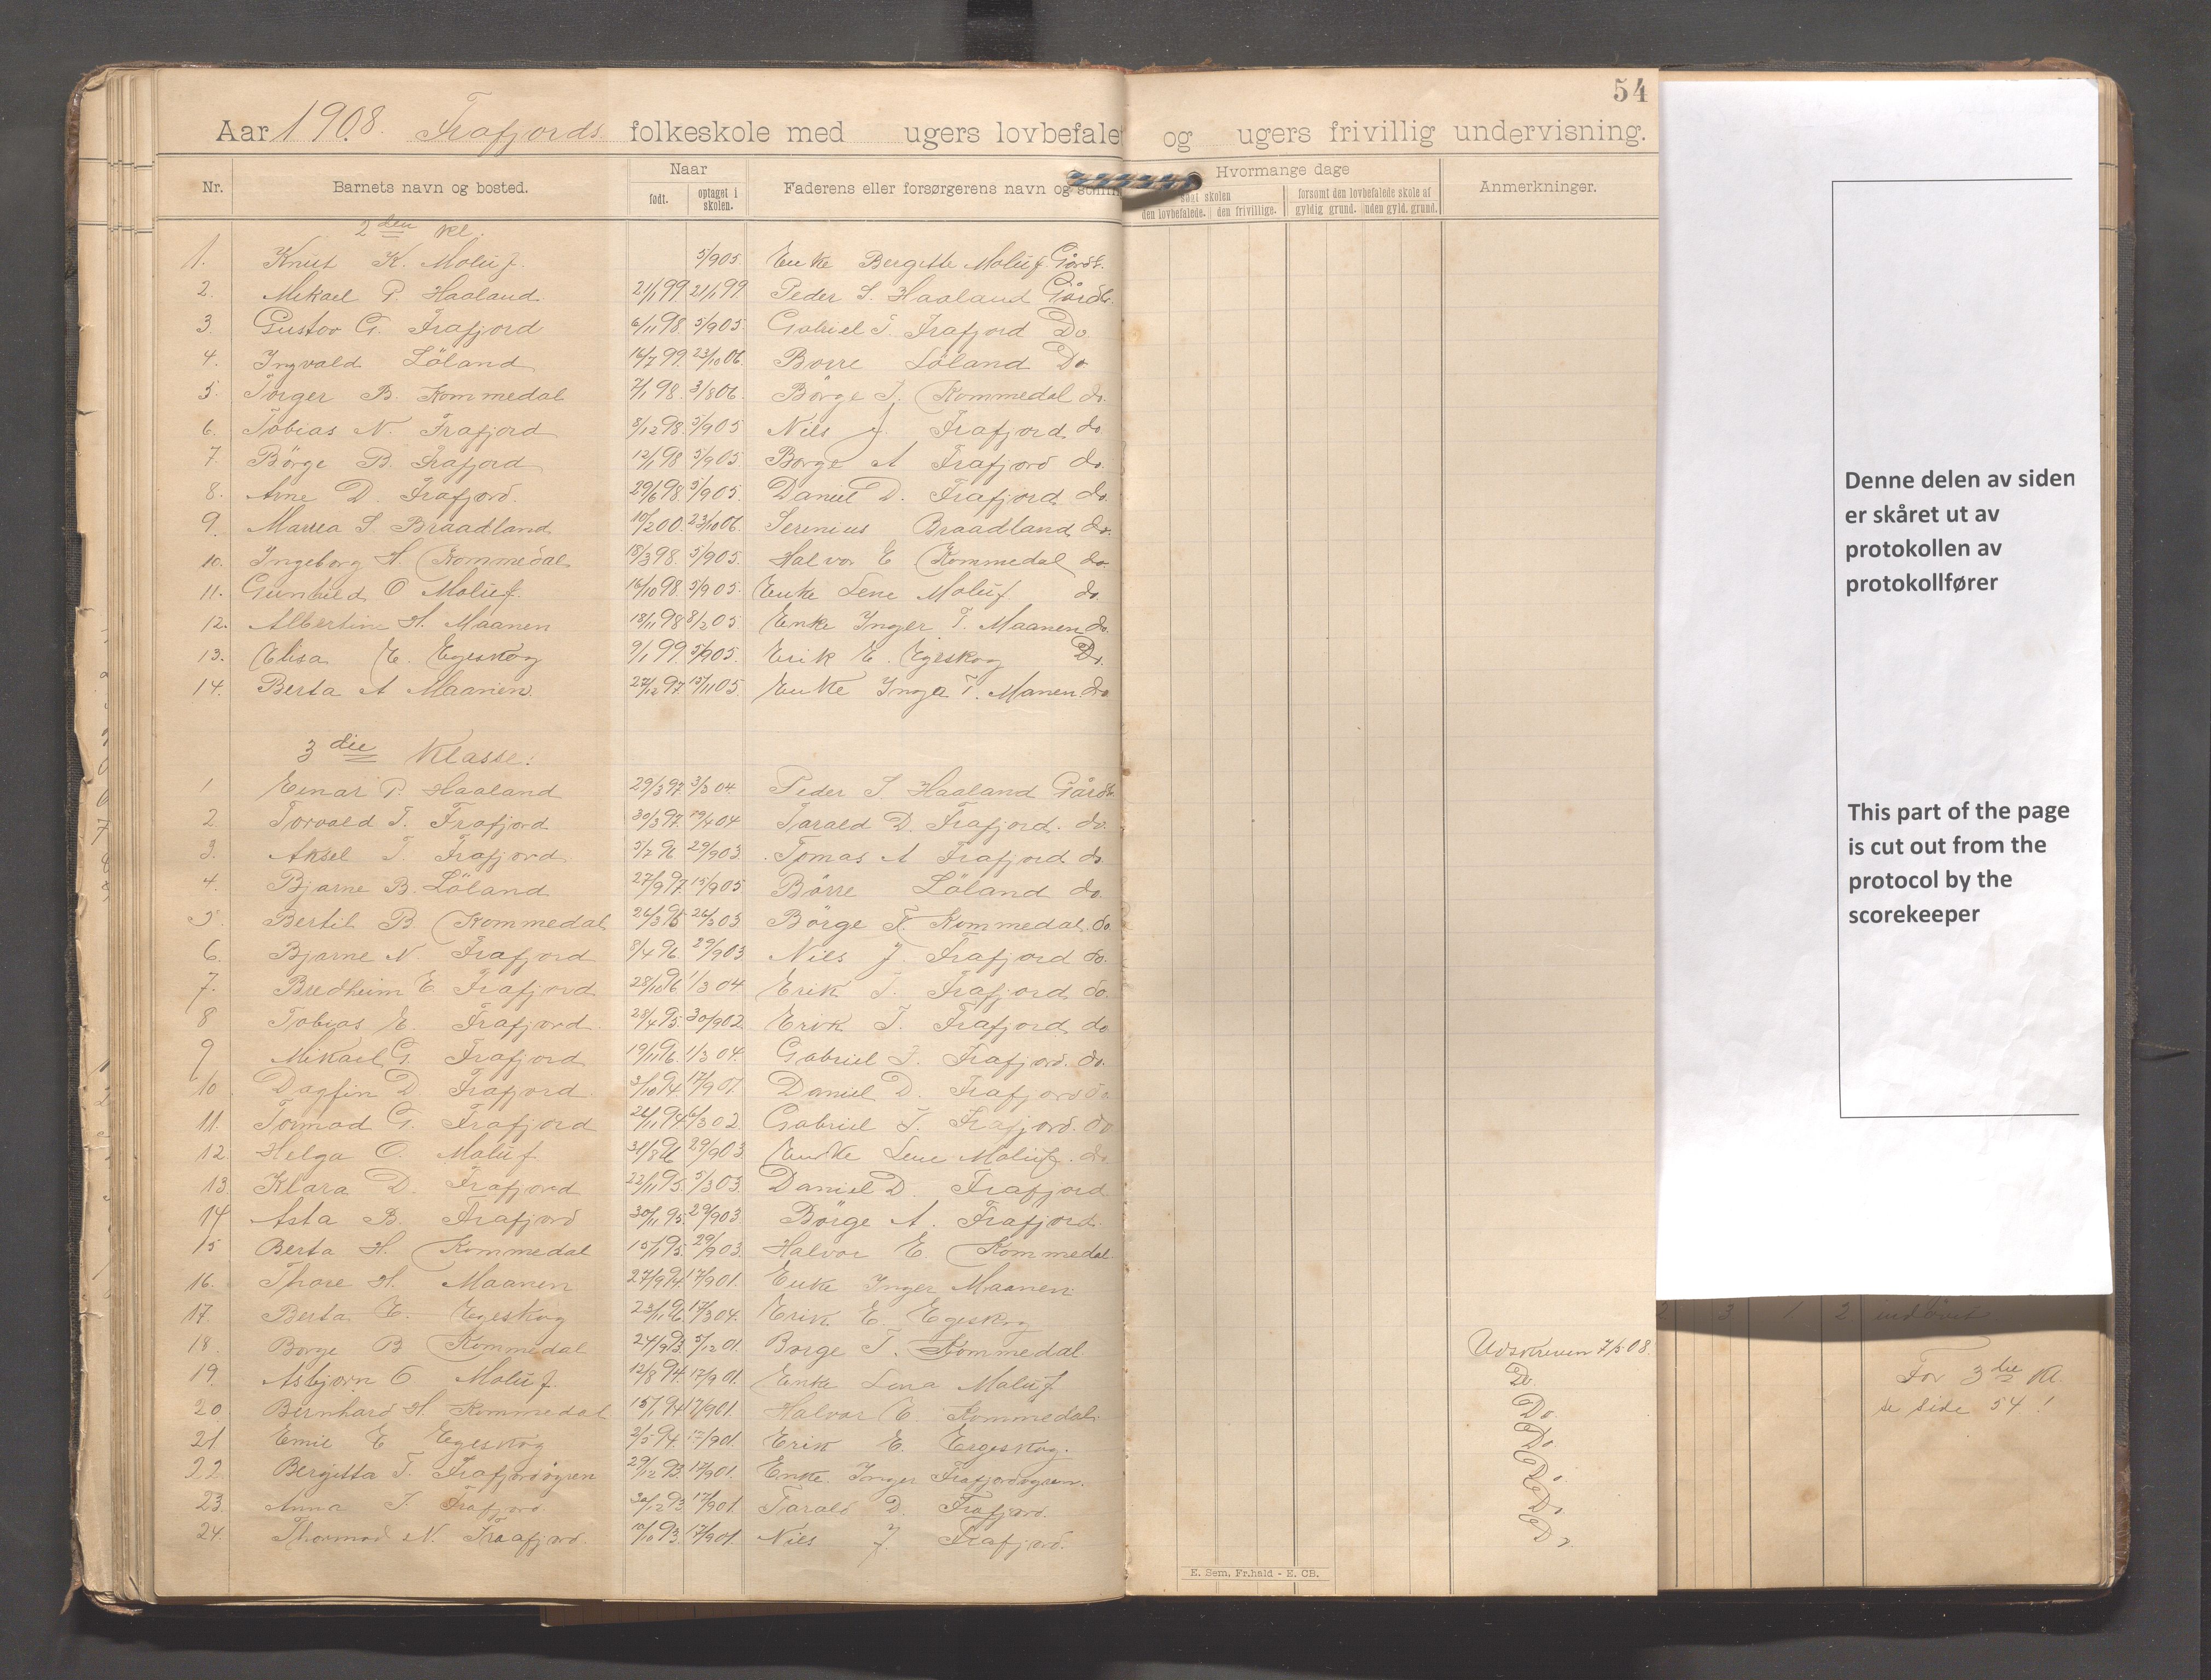 54
Aar 1908. Frafjords folkeskole med ugers lovbefalet og ugers frivillig undervisning.
Nr. Barnets navn og bosted. Naar født. optaget i skolen. Faderens eller forsørgerens navn og Hvormange dage søgt skolen den lovbefalede. den frivillige. forsømt den lovbefalede skole af gyldig grund. uden gyld. grund. Anmerkninger.
2den kl.
1. Knut K. Moluf. 5/905. Enke Bergitte Moluf. Gårdb.
2. Mikael P. Haaland 21/1 99 21/1 99 Peder S. Haaland Gårdb.
3. Gustav G. Frafjord 6/11 98. 5/905. Gabriel T. Frafjord Do
4. Ingvald Löland 16/7 99. 23/10 06. Borre Löland Do
5. Torger B. Kommedal 7/1 98. 3/806. Börge T. Kommedal do.
6. Tobias N. Frafjord 8/12 98. 5/905 Nils J. Frafjord do
7 Börge B. Frafjord 12/1 98 5/905. Borge A Frafjord do.
8. Arne D. Frafjord. 29/6 98 5/905. Daniel D. Frafjord do.
9. Marrea S. Braadland 10/2 00. 23/10 06. Serenius Braadland do.
10. Ingeborg H Kommedal 18/3 98. 5/905. Halvor E Kommedal do.
11. Gunhild O Moluf. 16/10 98. 5/905. Enke Lene Moluf do.
12. Albertine H. Maanen 18/11 98 8/2 05 Enke Inger T. Maanen do.
13. Elisa E. Egeskog 9/1 99 5/905. Erik E. Egeskog Do.
14. Berta A Maanen 27/12 97 15/11 05. Enke Inga T. Manen. do
3die Klasse:
1 Einar P. Haaland 29/3 97. 3/3 04. Peder S Haaland Gårdb.
2 Torvald T. Frafjord 30/3 97. 19/4 04 Tarald D. Frafjord. do.
3. Aksel T. Frafjord 5/7 96 29/903. Tomas A Frafjord do.
4. Bjarne B. Löland 27/9 97 15/905 Börre Löland do.
5. Bertil B. Kommedal 26/3 95 26/3 03 Börge T. Kommedal. do.
6. Bjarne N. Frafjord 8/4 96. 29/903 Nils J. Frafjord do.
7. Bredheim E. Frafjord 28/10 96 1/3 04 Erik T. Frafjord do.
8 Tobias E. Frafjord 28/4 95. 30/902. Erik T. Frafjord do
9 Mikael G. Frafjord 19/11 96. 1/3 04. Gabriel T. Frafjord. do.
10. Dagfin D. Frafjord 3/10 94. 17/901. Daniel D. Frafjord do
11. Tormod G. Frafjord 26/11 94 6/3 02. Gabriel T. Frafjord. do
12. Helga O. Moluf 31/8 96 29/903 Enke Lene Moluf. do.
13. Klara D. Frafjord 22/11 95. 5/3 03. Daniel D. Frafjord
14 Asta B. Frafjord 30/11 95. 29/903. Börge A. Frafjord.
15 Berta H. Kommedal 15/1 95. 29/9 03. Halvor E. Kommedal.
16. Thore H. Maanen 27/9 94. 17/901. Enke Inger Maanen.
17. Berta E. Egeskog 23/11 96 17/3 04. Erik E. Egeskog
18. Borge B Kommedal 24/9 93. 5/12 01. Borge T. Kommedal Udskreven 7/5 08.
19. Asbjorn O. Moluf. 12/8 94. 17/9 01. Enke Lena Moluf Do.
20. Bernhard H. Kommedal 15/1 94 17/901. Halvor E. Kommedal. Do.
21 Emil E Egeskog 2/5 94. 17/901. Erik E. Ergeskog. Do.
22. Bergitta T. Frafjordögren 29/12 93. 17/901. Enke Inger Frafjordögren. Do.
23. Anna T. Frafjord. 30/12 93 17/901. Tarald D. Frafjord. Do.
24. Thormod N. Frafjord. 10/10 93. 17/901. Nils J. Frafjord. Do.
E. Sem, Fr.hald - E. CB.
Denne delen av siden
er skåret ut av
protokollen av
protokollfører
This part of the page
is cut out from the
protocol by the
scorekeeper
2 3 1 2
For 3die Kl.
se side 54!